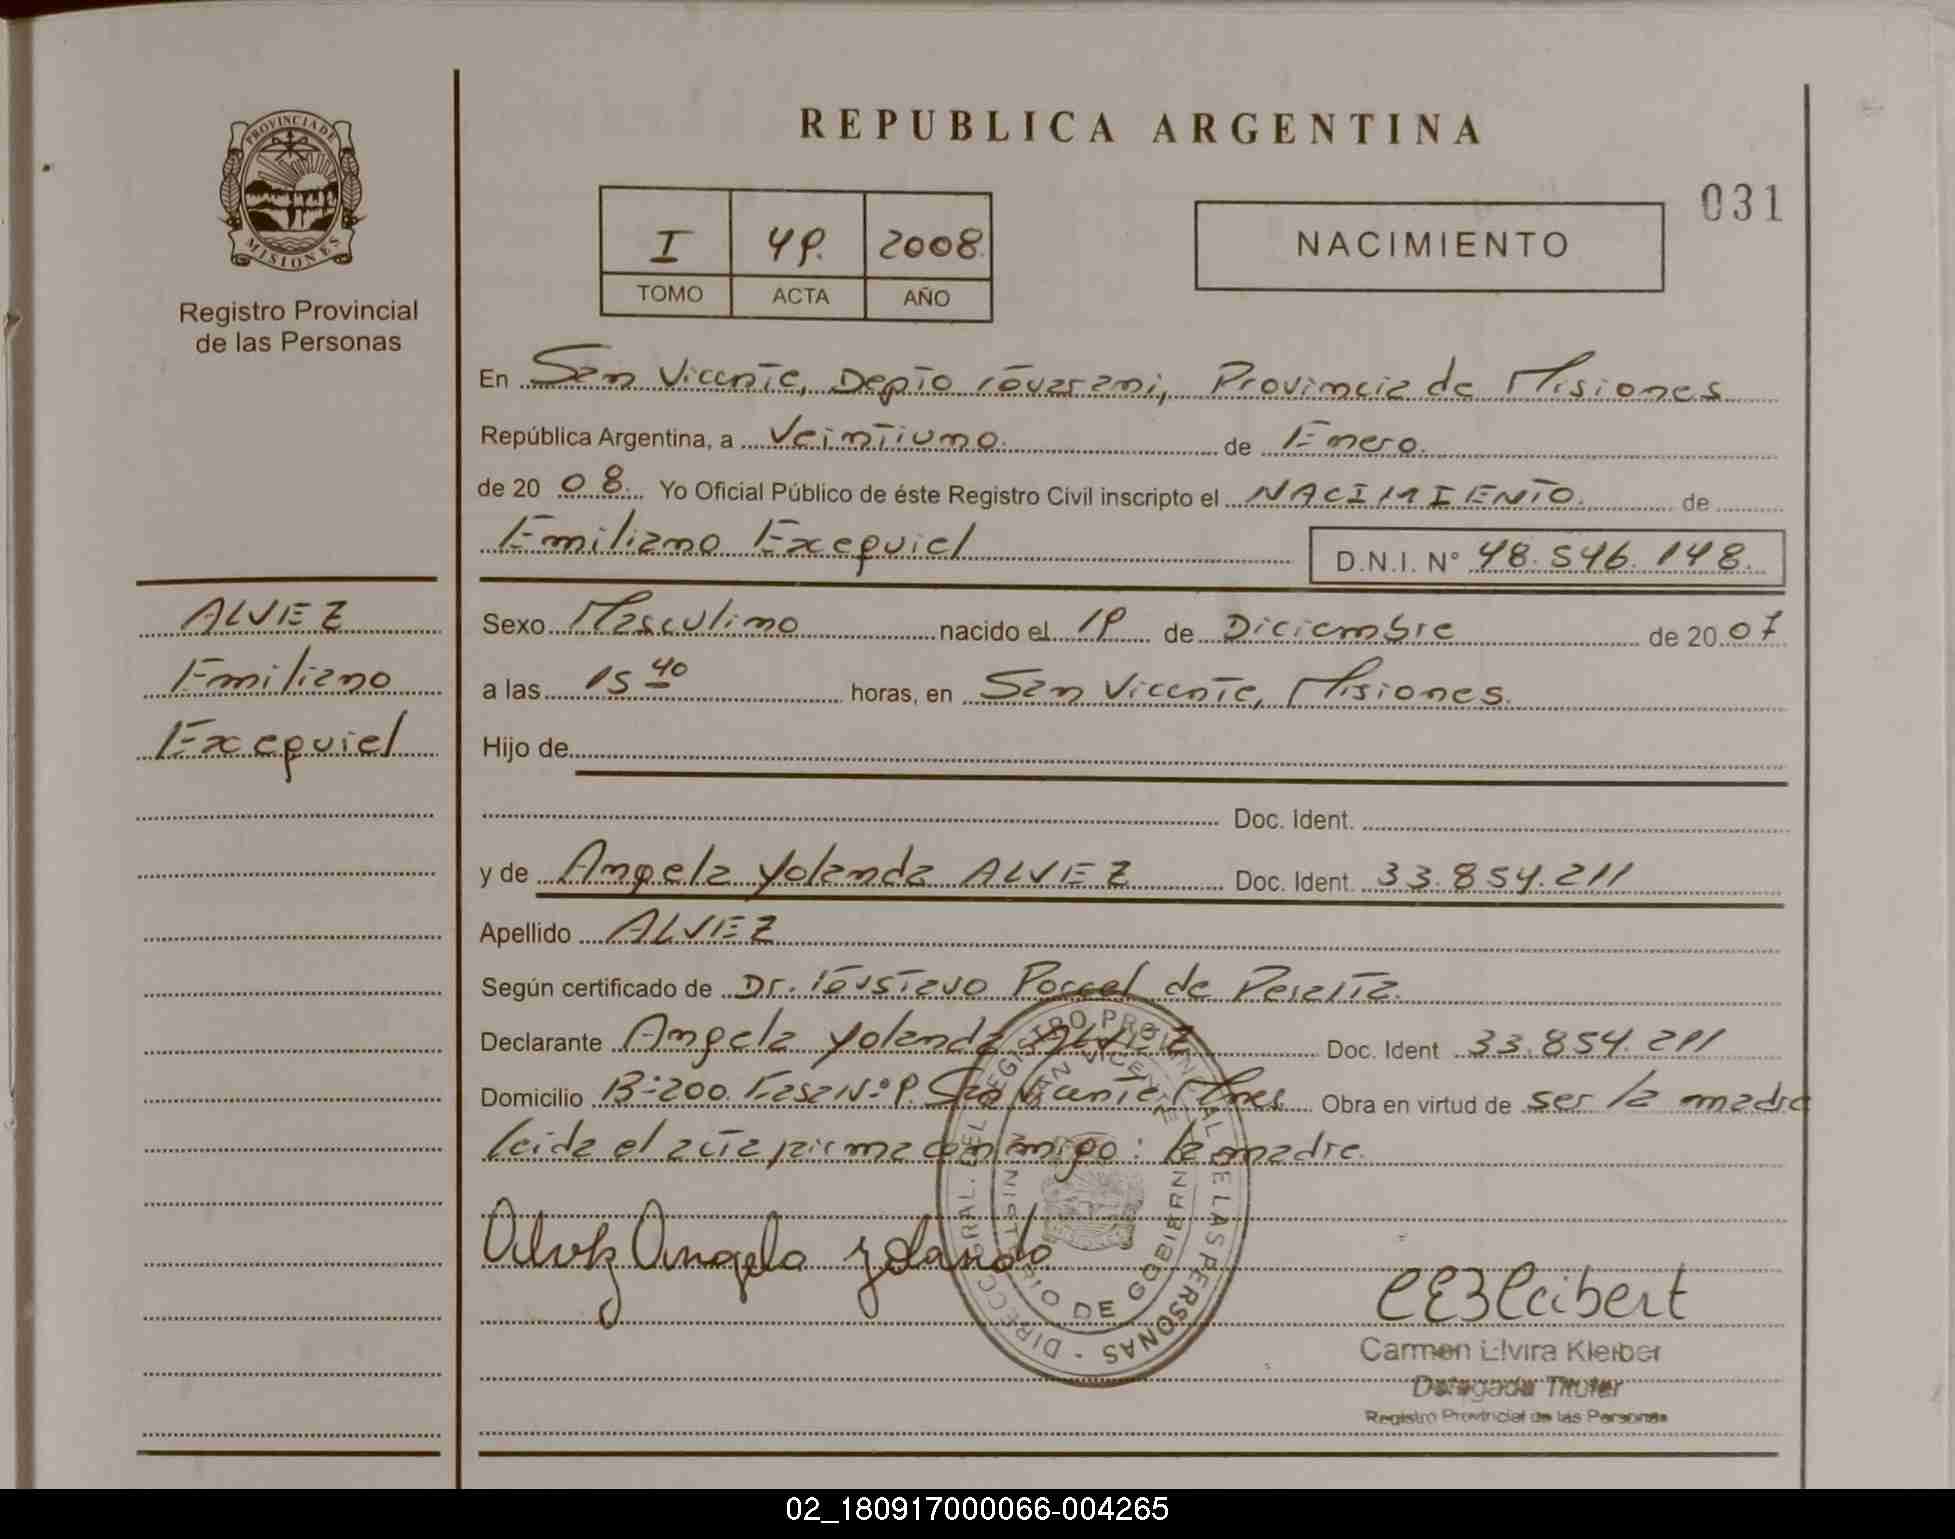 REPUBLICA ARGENTINA
PROVINCIA DE
MISIONES
Registro Provincial
de las Personas
I 49. 2008.
TOMO ACTA AÑO
NACIMIENTO
031
En San Vicente, Depto Guarani, Provincia de Misiones
República Argentina, a Veintiuno. de Enero.
de 20 08. Yo Oficial Público de éste Registro Civil inscripto el NACIMIENTO. de
Emiliano Exequiel
D.N.I. N° 48.546.148.
ALVEZ
Emiliano
Exequiel
Sexo Masculino nacido el 19 de Diciembre de 20 07
a las 15 40 horas, en San Vicente, Misiones.
Hijo de
Doc. Ident.
y de Angela Yolanda ALVEZ Doc. Ident. 33.854.211
Apellido ALVEZ
Según certificado de Dr. Gustavo de Peralta.
Declarante Angela Yolanda ALVEZ Doc. Ident 33.854.211
Domicilio B=200. Casa N=9. San Vicente Mnes Obra en virtud de ser la madre
leida el acta firma conmigo: la madre.
DIRECC. GRAL. DEL REGISTRO PROVINCIAL DE LAS PERSONAS
SAN VICENTE
MINISTERIO DE GOBIERNO
Alvez Angela yolanda
Carmen Elvira Kleiber
Delegada Titular
Registro Provincial de las Personas
02_180917000066-004265